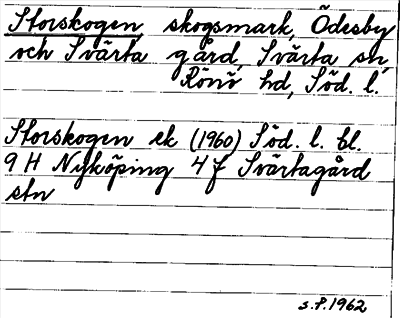 Storskogen, skogsmark, Ödesby
och Svärta gård, Svärta sn,
Rönö hd, Söd. l.
Storskogen ek (1960) Söd. l. bl.
9 H Nyköping 4 f Svärtagård
stn
s.P. 1962